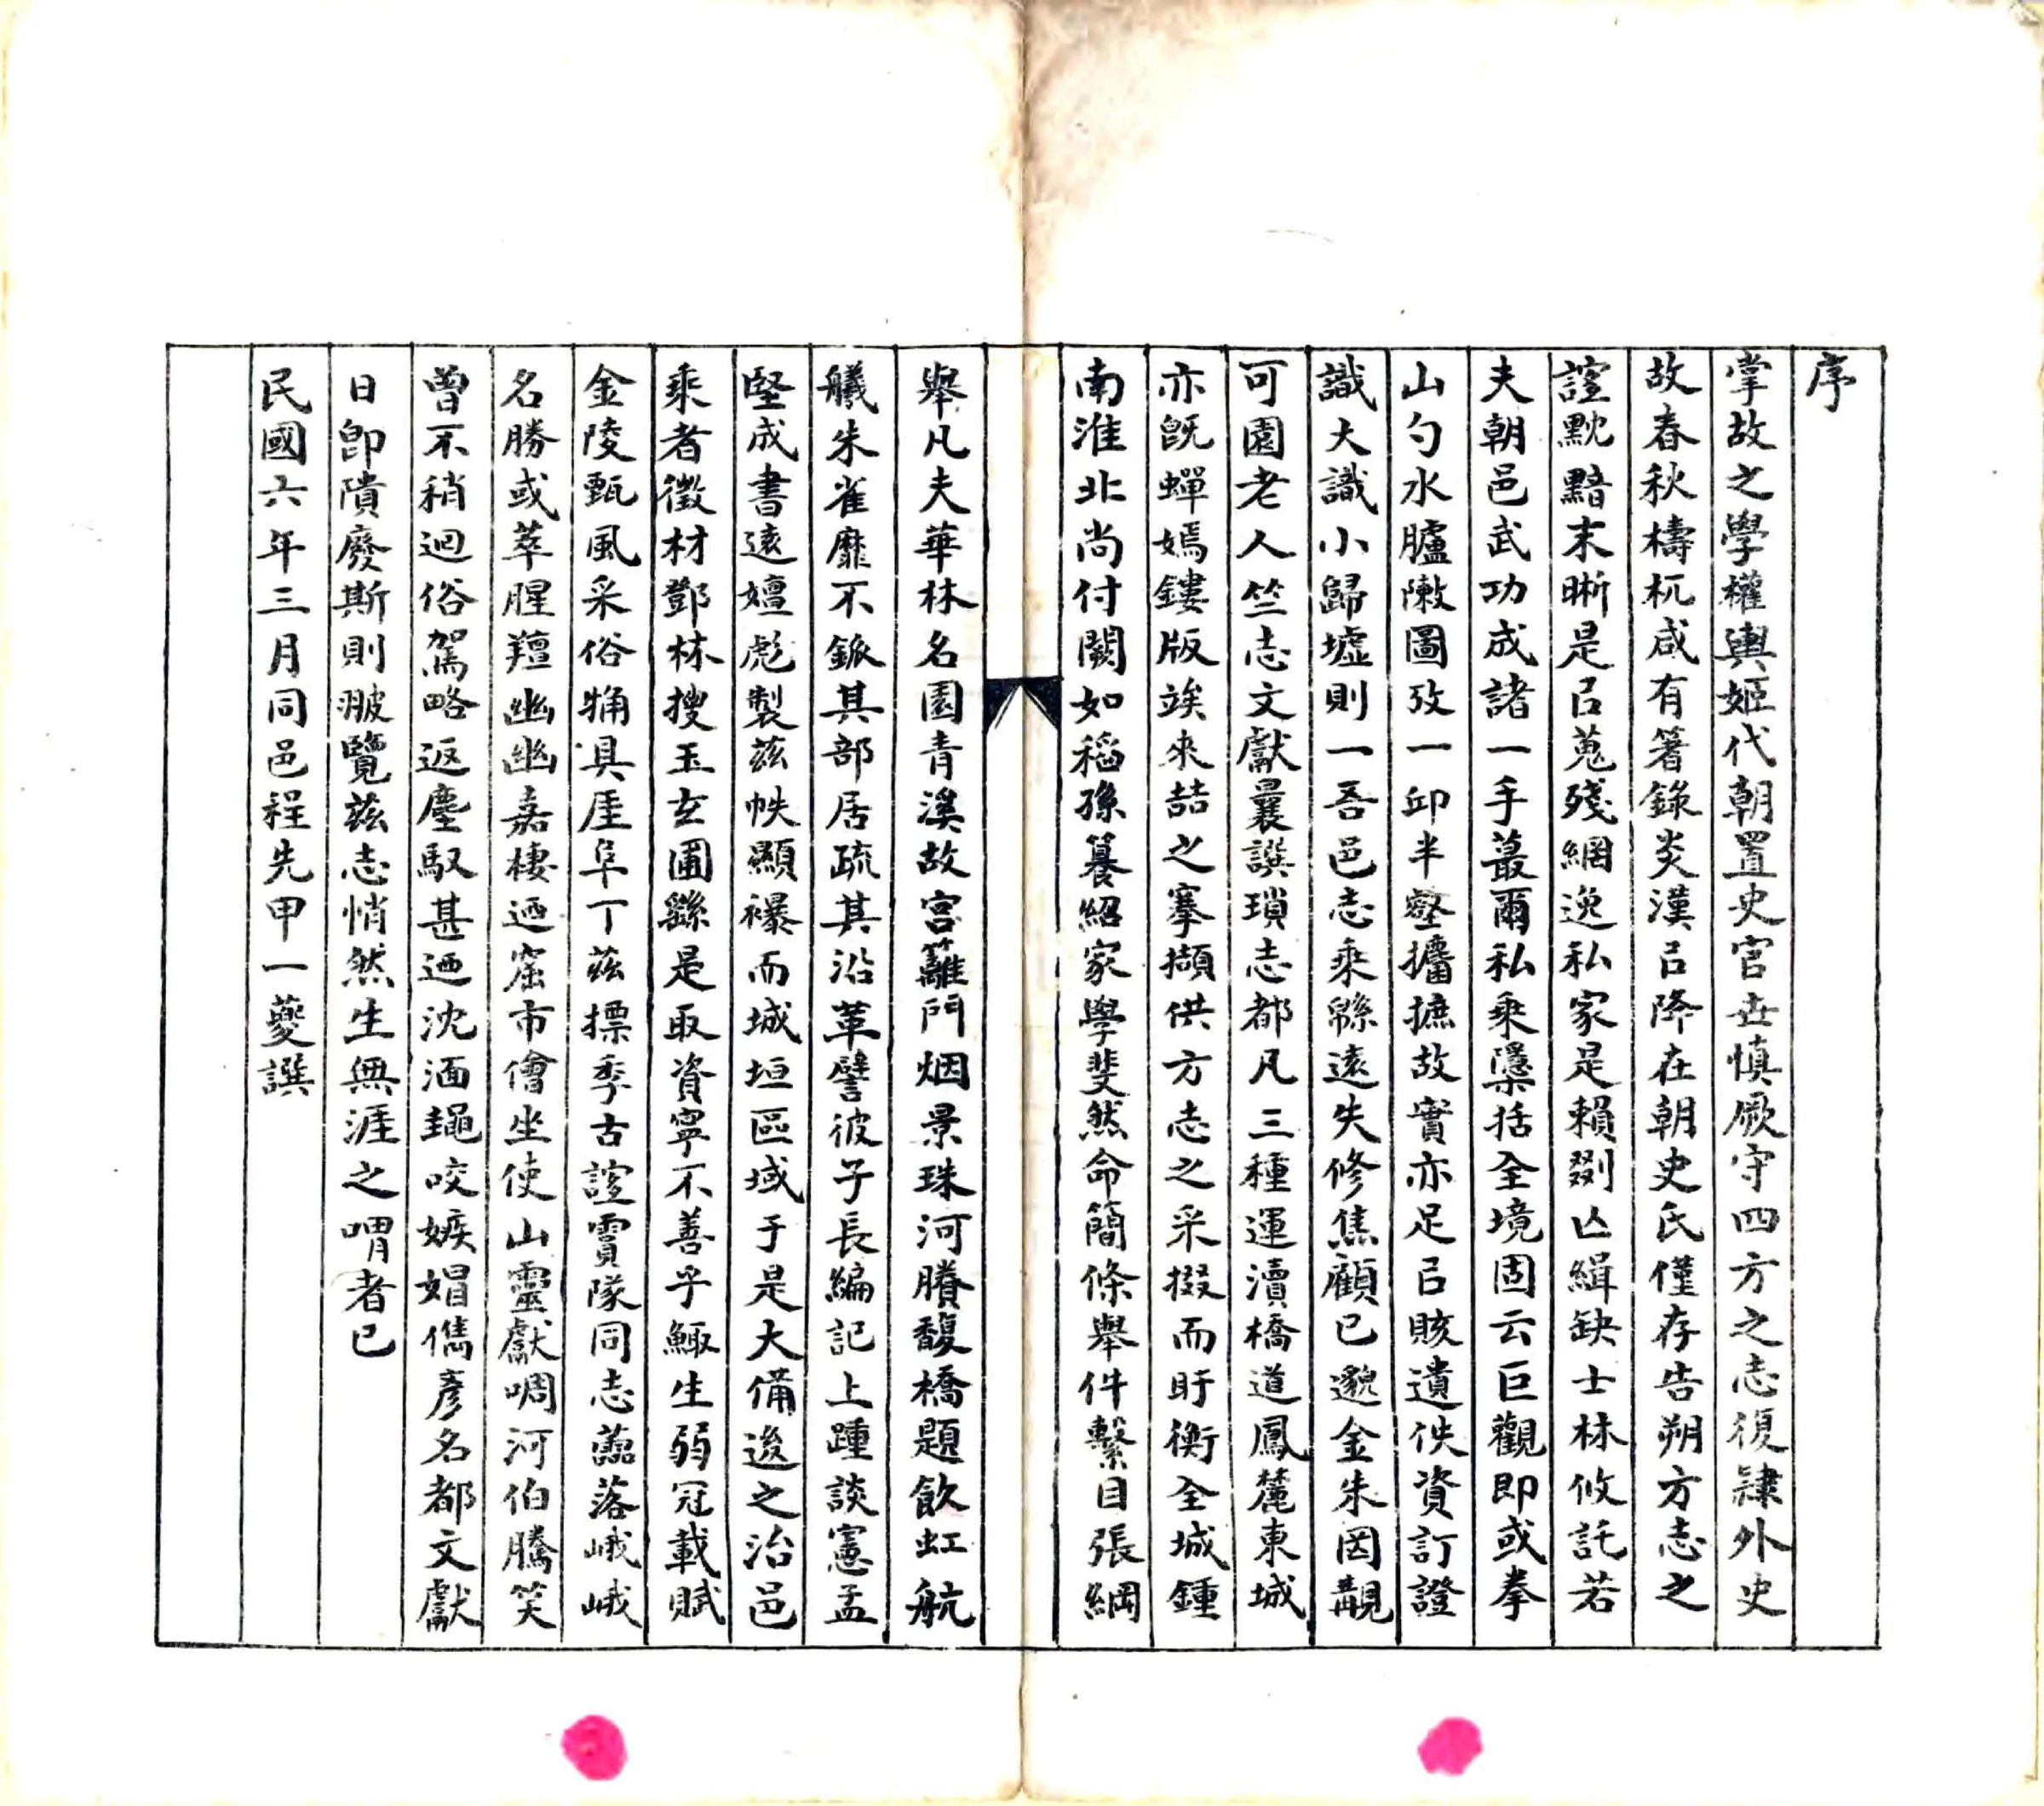 序
掌故之學權輿姬代朝置史官世慎厥守四方之志復隸外史
故春秋檮杌咸有箸錄炎漢㠯降在朝史氏僅存告朔方志之
諠黕黯末晣是㠯蒐殘網逸私家是賴剟亾緝缺士林攸託若
夫朝邑武功成諸一手蕞爾私乘檃括全境固云巨觀即或拳
山勺水臚敶圖攷一邱半壑攟摭故實亦足㠯賅遺佚資訂證
識大識小歸墟則一吾邑志乘緜遠失修焦顧已邈金朱罔覯
可園老人竺志文獻曩譔瑣志都凡三種運瀆橋道鳳麓東城
亦旣蟬嫣鏤版竢來喆之搴擷供方志之采掇而盱衡全城鍾
南淮北尚付闕如稻孫纂紹家學斐然命簡條舉件繫目張綱
舉凡夫華林名園青溪故宮籬門烟景珠河賸馥橋題飲虹航
艤朱雀靡不𨥖其部居疏其沿革譬彼子長編記上踵談憲孟
堅成書遠嬗彪製茲帙顯襮而城垣區域于是大備逡之治邑
乘者徵材鄧林搜玉玄圃繇是取資寧不善乎鯫生弱冠載賦
金陵甄風采俗觕具厓阜丁茲摽季古諠賈隊同志蕌落峨峨
名勝或萃腥羶幽幽嘉棲迺窟市儈坐使山靈獻啁河伯騰笑
曾不稍迴俗駕略返塵馭甚迺沈湎䵷咬嫉娼儁彥名都文獻
日卽隤廢斯則𤿎覽茲志悄然生無涯之喟者已
民國六年三月同邑程先甲一夔譔